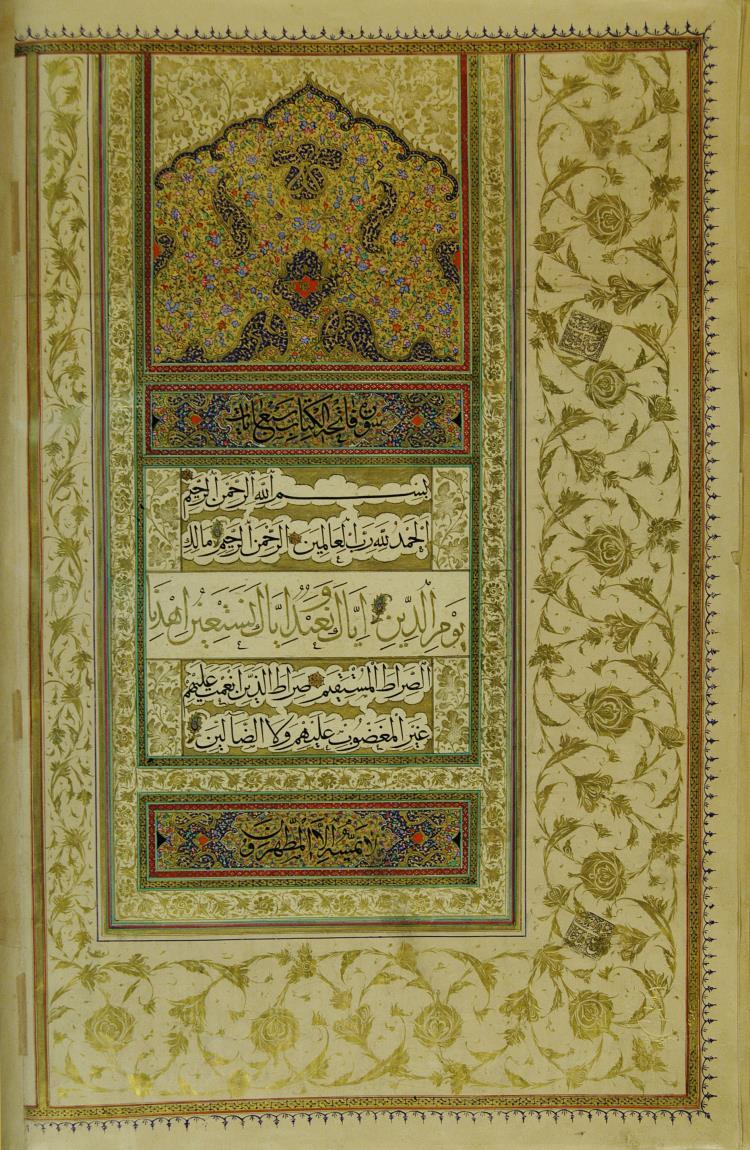 سورة فاتحة الكتاب سبع آيات
بسم الله الرحمن الرحيم
الحمد لله رب العالمين الرحمن الرحيم مالك
يوم الدين اياك نعبد واياك نستعين اهدنا
الصراط المستقيم صراط الذين انعمت عليهم
غير المغضوب عليهم ولا الضالين
لا يمسه الا المطهرون